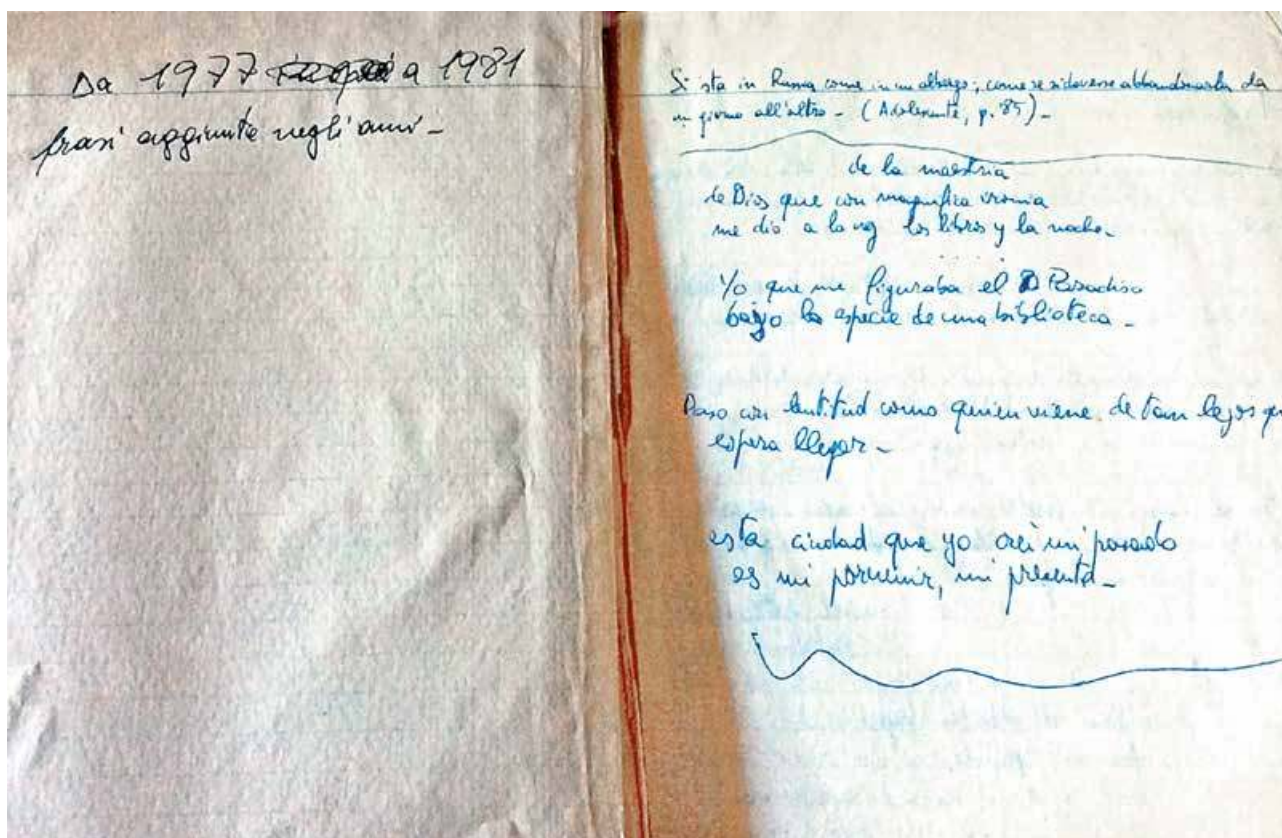 Da 1977 a 1981
frasi aggiunte negli anni -
Si sta in Russia come in un albergo; come se si dovesse abbandonarla da
un giorno all'altro - (Adolescente, p. 85) -
de la maestria
de Dios que con magnifica ironia
me dio a la vez los libros y la noche -
. . . . .
Yo que me figuraba el Paradiso
bajo la especie de una biblioteca -
Paso con lentitud como quien viene de tan lejos que
espera llegar -
esta ciudad que yo creì mi pasado
es mi porvenir, mi presente -